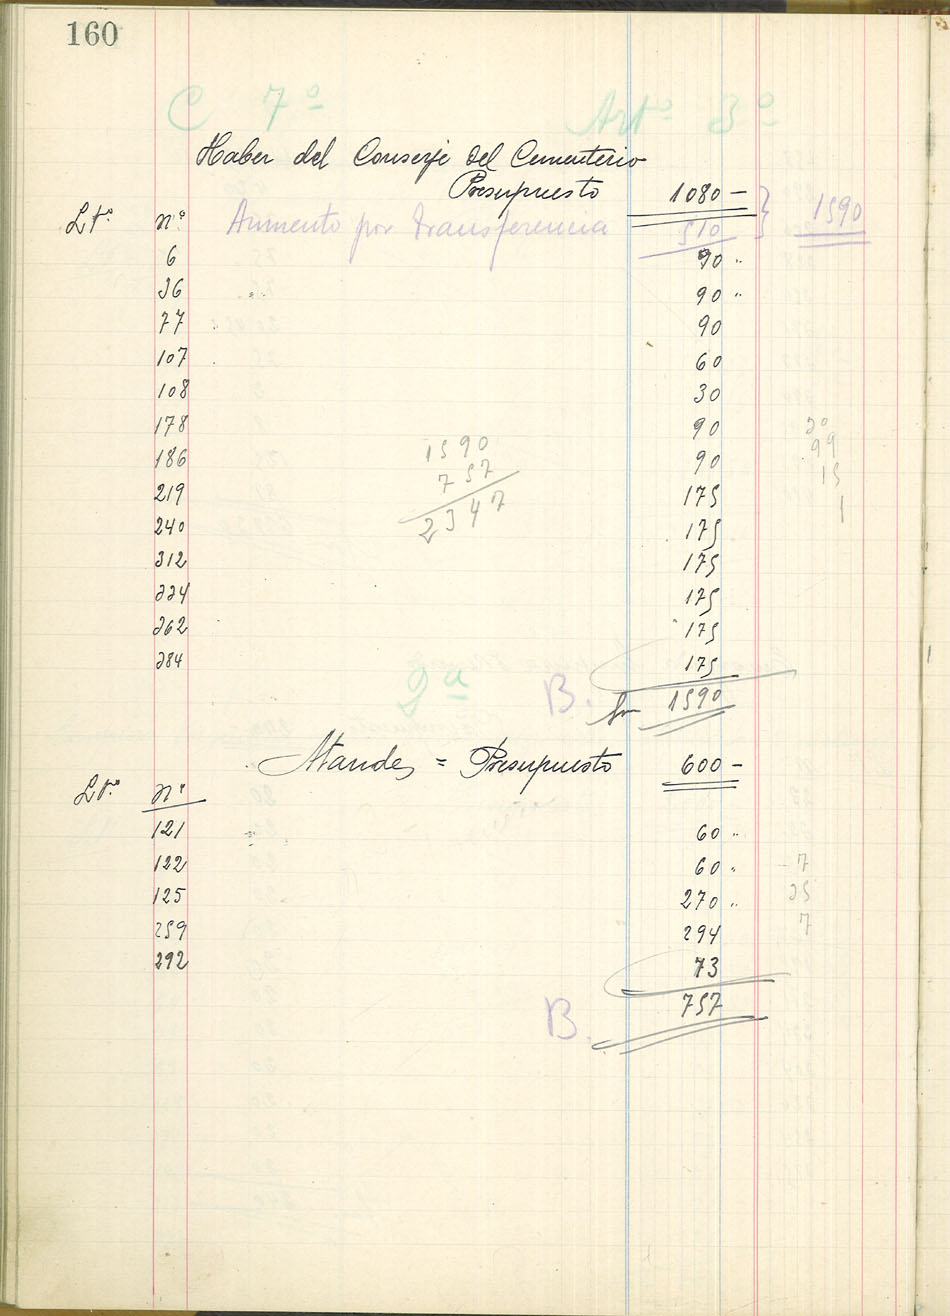 160
C 7º Artº 3º
Haber del Conserje del Cementerio
Presupuesto 1080 —
Lº nº Aumento por transferencia 510 } 1590
6 90 "
36 90 "
77 90
107 60
108 30
178 90 20
186 1590 90 99
219 757 175 15
240 2347 175 1
312 175
334 175
362 175
384 175
2ª B. 1590
Ataudes = Presupuesto 600 —
Lº Nº
121 60 "
122 60 " 7
125 270 " 25
259 294 7
292 73
B. 757